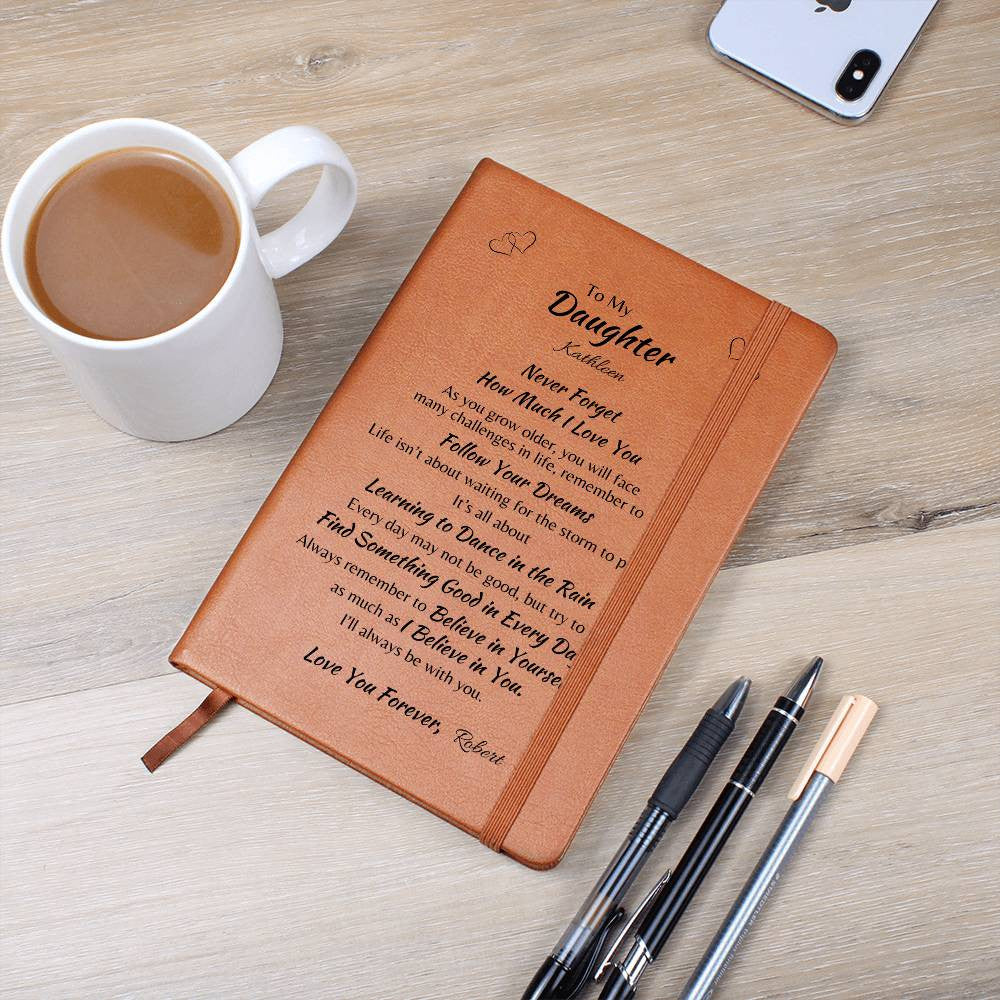 To My
Daughter
Kathleen
Never Forget
How Much I Love You
As you grow older, you will face
many challenges in life, remember to
Follow Your Dreams
Life isn't about waiting for the storm to p
It's all about
Learning to Dance in the Rain
Every day may not be good, but try to
Find Something Good in Every Da
Always remember to Believe in Yourse
as much as I Believe in You.
I'll always be with you.
Love You Forever, Robert